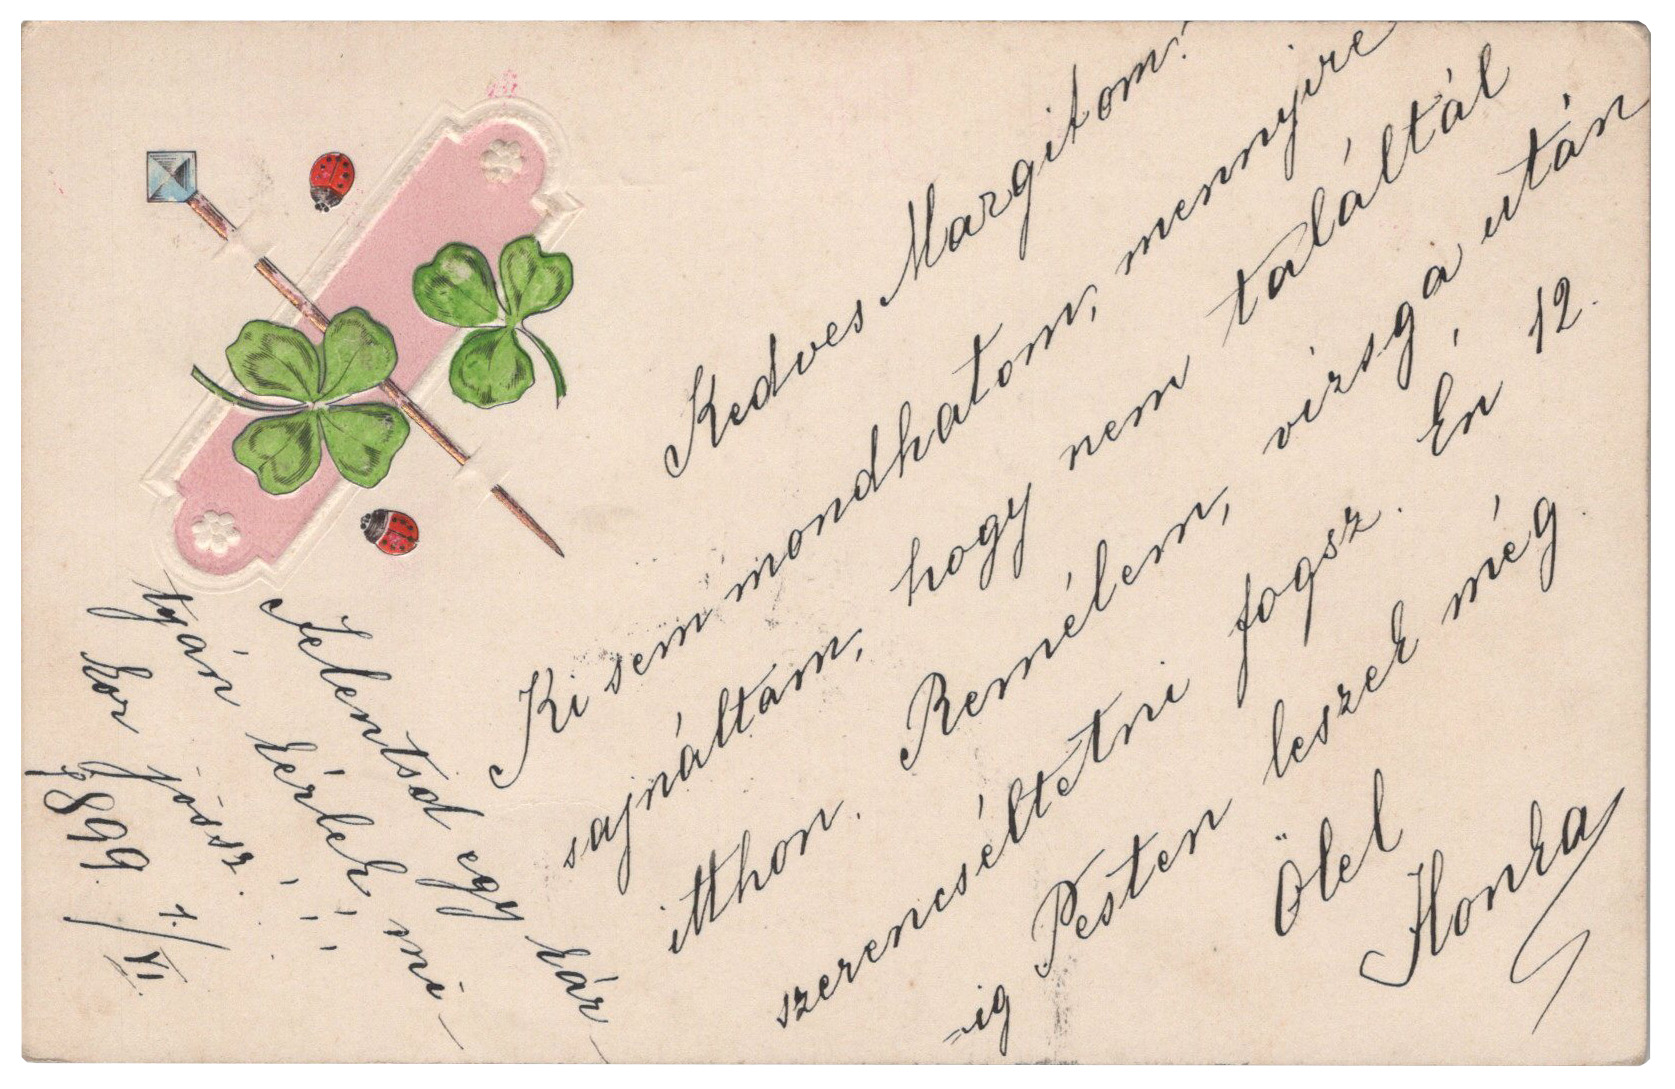 Kedves Margitom!
Ki sem mondhatom, mennyire
sajnáltam, hogy nem találtál
itthon. Remélem, vizsga után
szerencséltetni fogsz. Én 12.
-ig Pesten leszek még.
Ölel
Honka
Jelentsd egy kár-
tyán kérlek mi-
kor jössz.
899. 1./VI.